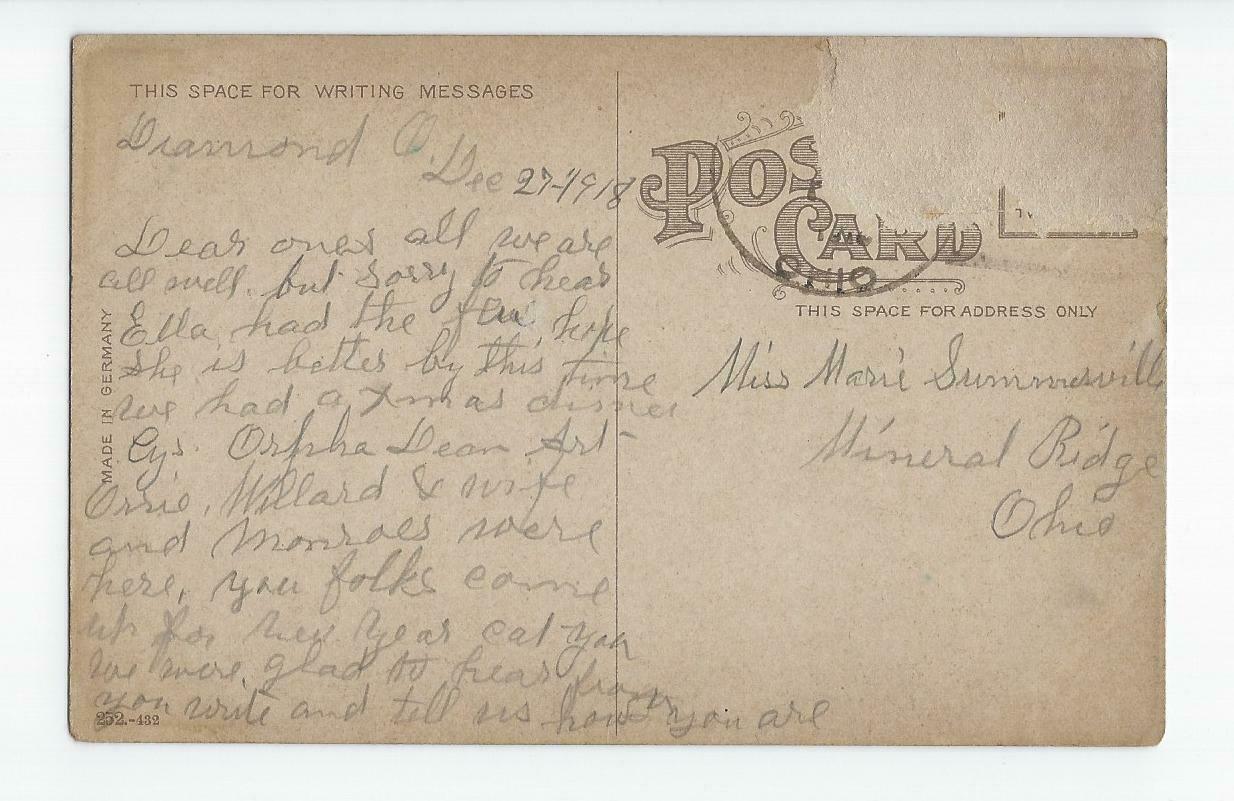 THIS SPACE FOR WRITING MESSAGES
Diamond O.
Dec 27-1918
Dear ones all we are
all well. but sorry to hear
Ella had the flu hope
she is better by this time
we had a Xmas dinner
Cys. Orpha Dean Art
Orrie, Willard & wife
and Monroes were
here, you folks come
up for new year
we were glad to hear from
you write and tell us how you are
MADE IN GERMANY
252.-432
POS
CARD
OHIO
THIS SPACE FOR ADDRESS ONLY
Miss Marie Summerville
Mineral Ridge
Ohio